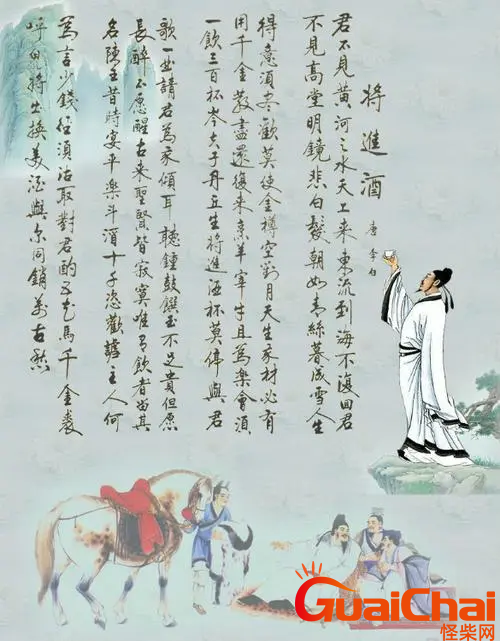 將進酒
唐 李白
君不見黃河之水天上来東流到海不復回君
不見高堂明鏡悲白髮朝如青絲暮成雪人生
得意須尽歡莫使金樽空對月天生我材必有
用千金散盡還復来烹羊宰牛且為樂會須
一飲三百杯岑夫子丹丘生將進酒杯莫停與君
歌一曲請君為我傾耳聽鍾鼓饌玉不足貴但愿
長醉不愿醒古来聖賢皆寂寞唯有飲者留其
名陳王昔時宴平樂斗酒十千恣歡謔主人何
為言少錢徑須沽取對君酌五花馬千金裘
呼兒將出換美酒與尔同銷萬古愁
GuaiChai
怪柴网